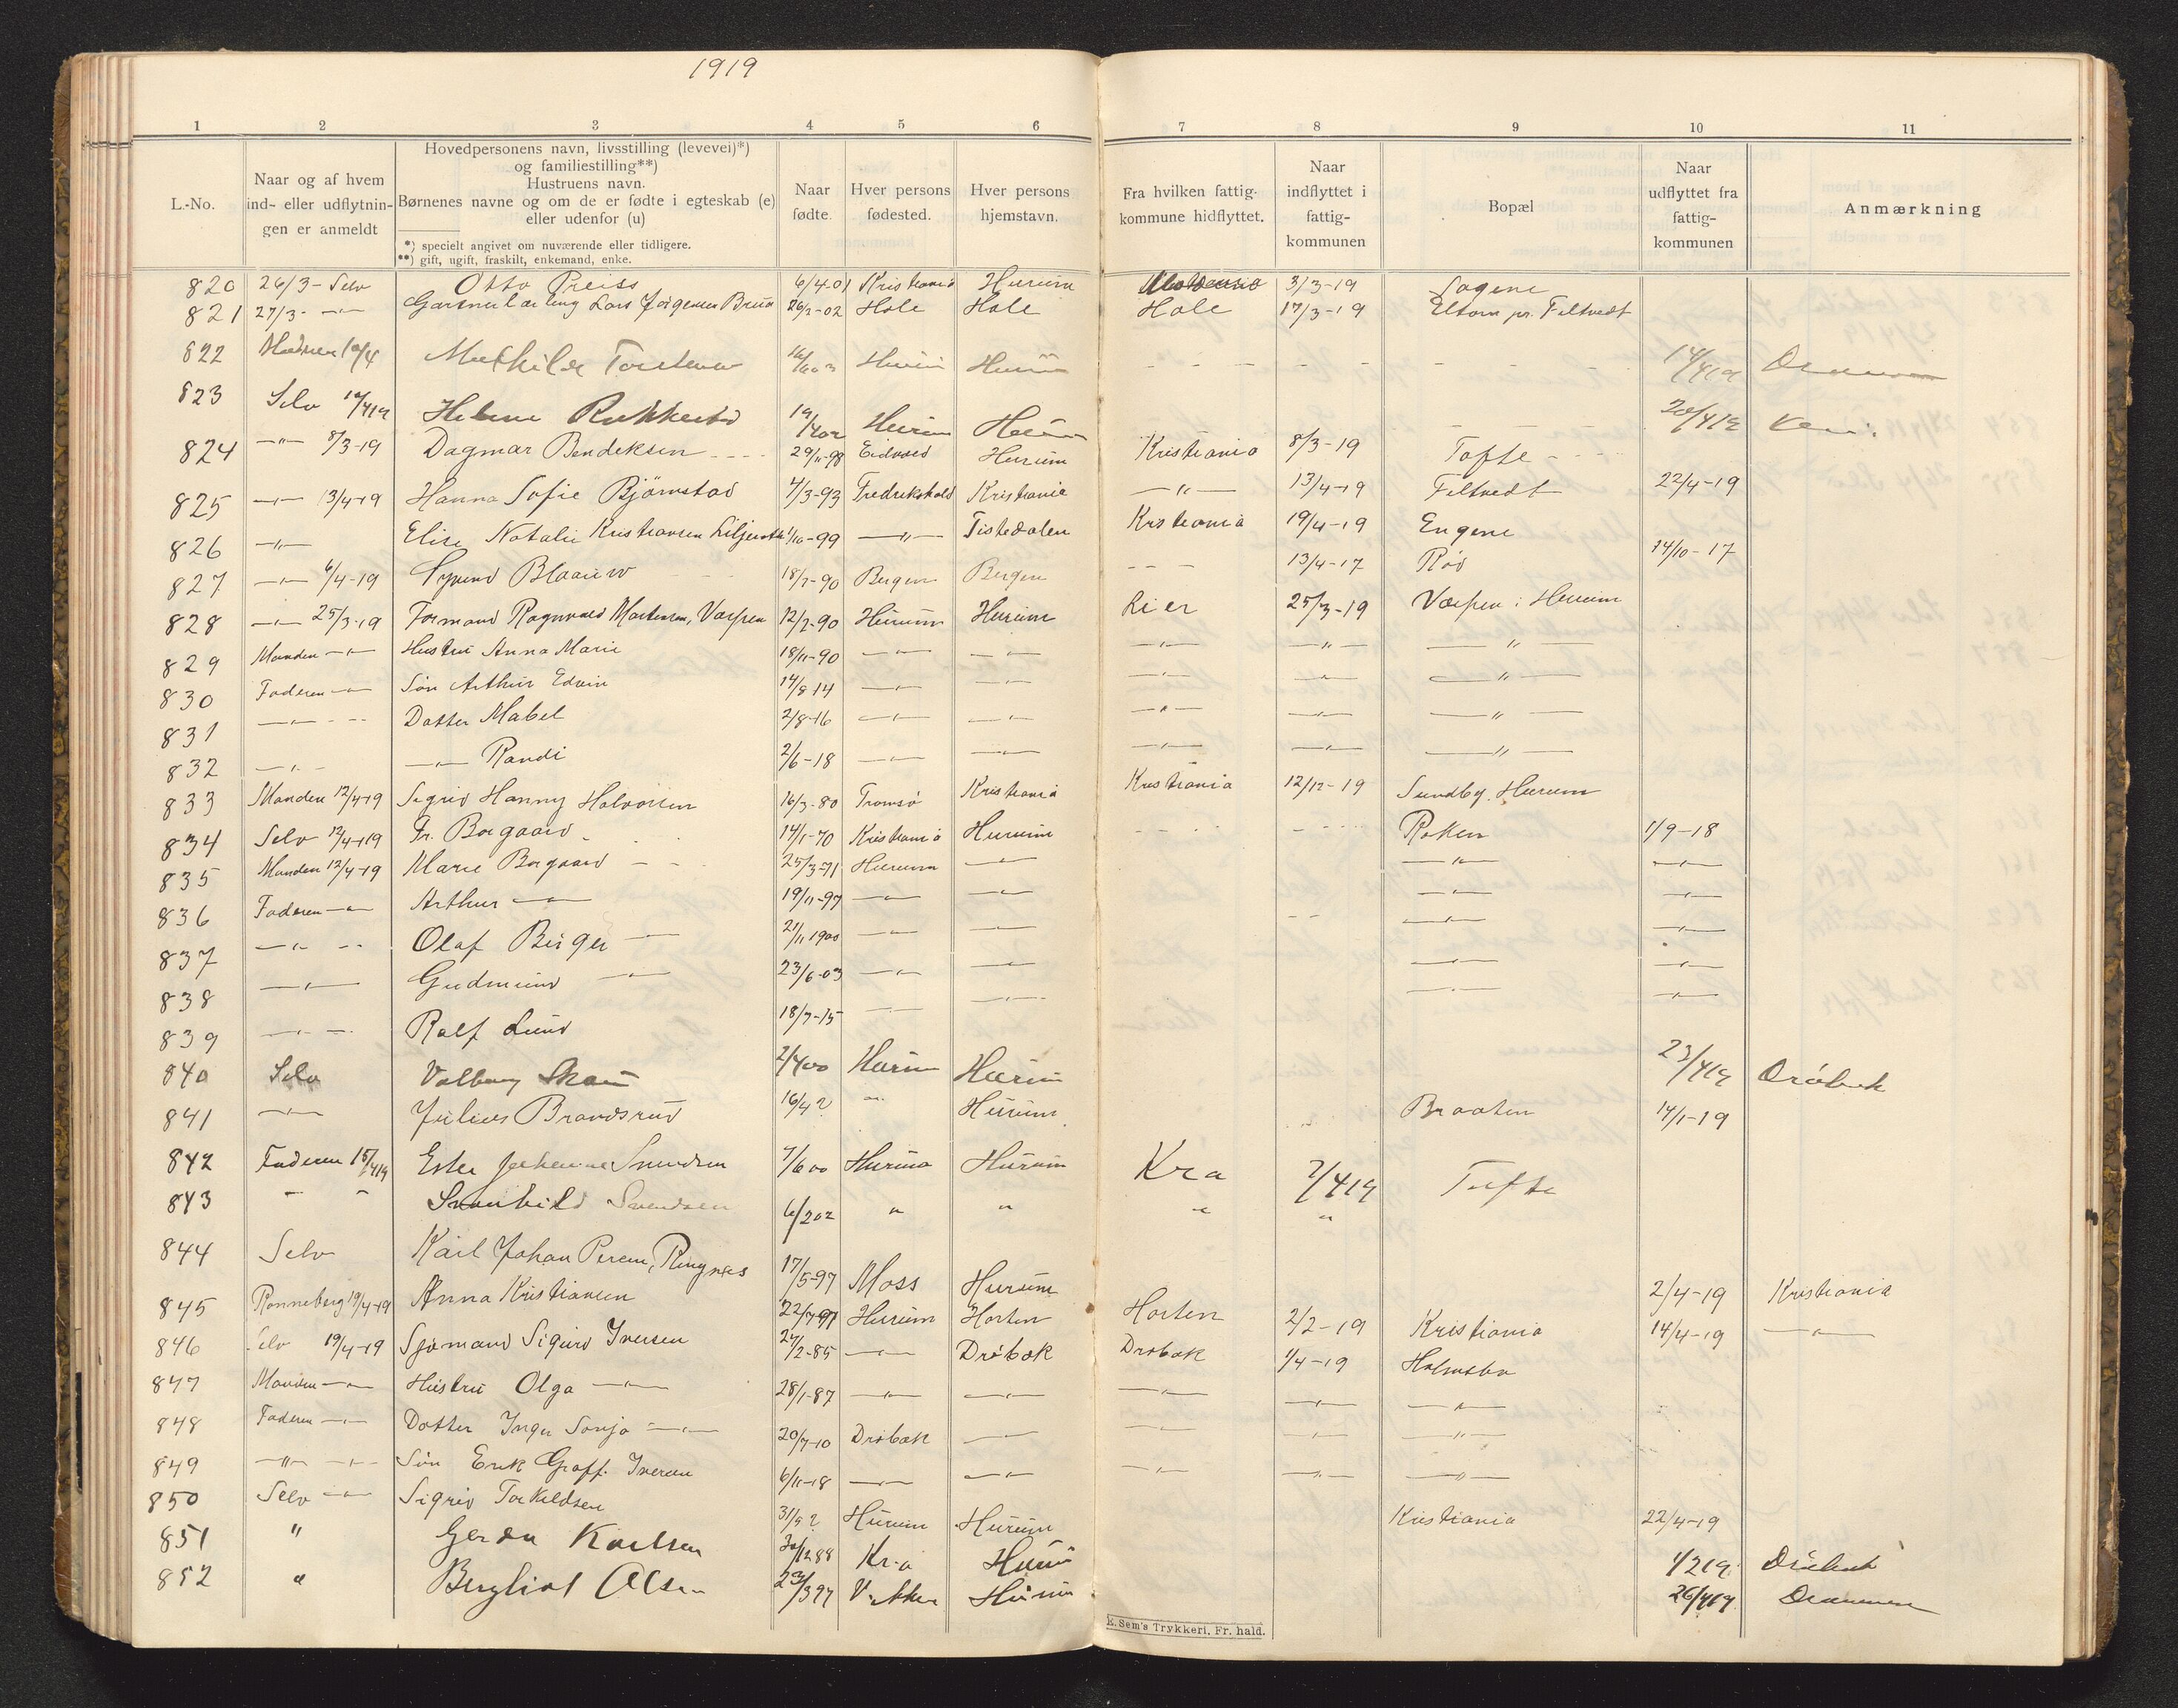 1919
1 2 3 4 5 6 7 8 9 10 11
L.-No.
Naar og af hvem ind- eller udflytnin- gen er anmeldt
Hovedpersonens navn, livsstilling (levevei)*)
og familiestilling**)
Hustruens navn.
Børnenes navne og om de er fødte i egteskab (e)
eller udenfor (u)
*) specielt angivet om nuværende eller tidligere.
**) gift, ugift, fraskilt, enkemand, enke.
Naar fødte.
Hver persons fødested.
Hver persons hjemstavn.
Fra hvilken fattig- kommune hidflyttet.
Naar indflyttet i fattig- kommunen
Bopæl
Naar udflyttet fra fattig- kommunen
Anmærkning
820 26/3 - Selv Otto Preiss 6/4-01 Kristiania Hurum 3/3-19 Sagene
821 27/3 - -"- Gartnerlærling Lars Jørgensen Bruu 26/2-02 Hole Hole Hole 17/3-19 Feltvedt
822 Mathilde Torstensen Hurum Hurum - - - - - - 14/4 19
823 Selv Helene Hurum Hurum 20/4 19
824 -"- 8/3-19 Dagmar Bendiksen 29/11-98 Eidsvold Hurum Kristiania 8/3-19 Tofte
825 -"- 13/4-19 Hanna Sofie Bjørnstad 7/3-93 Fredrikshald Kristiania -"- 13/4-19 Feltvedt 22/4-19
826 -"- Elise Natalie Kristiansen 1/10-99 -"- Tistedalen Kristiania 19/4-19 Engene
827 -"- 6/4-19 Blaauw 18/7-90 Bergen Bergen - - - 13/4-17 Rød 14/10-17
828 -"- 25/3-19 Formand Ragnvald Martinsen, Værpen 12/2-90 Hurum Hurum Lier 25/3-19 Værpen i Hurum
829 Manden -"- Hustru Anna Marie 18/11-90 -"- -"- -"- -"- -"-
830 Faderen -"- Søn Arthur Edvin 14/8 14 -"- -"- -"- -"- -"-
831 -"- - - Datter Mabel 2/8-16 -"- -"- -"- -"- -"-
832 -"- - -"- Randi 2/6-18 -"- -"- -"- -"- -"-
833 Manden 12/4-19 Sigrid Hanny Halvorsen 16/3-80 Tromsø Kristiania Kristiania 12/12-19 Sundby, Hurum
834 Selv 12/4-19 Fr. Borgaard 14/1-70 Kristiania Hurum - - - - - - Røken 1/9-18
835 Manden 12/4-19 Marie Borgaard - - 25/3-71 Hurum -"- -"- -"-
836 Faderen -"- Arthur -"- 19/11-97 -"- -"- -"- -"-
837 -"- - - Olaf Birger -"- 21/11 1900 -"- -"- - - -"- -"-
838 -"- Gudmund -"- 23/6-03 -"- -"- -"- -"-
839 -"- - Ralf Lund 18/7-15 -"- -"- -"- -"-
840 Selv Valborg 2/4 00 Hurum Hurum 23/4 19 Drøbak
841 -"- Julius Brandsrud 16/4 ? -"- Hurum Braaten 14/1-19
842 Faderen 15/4 19 Ester Johanne Svendsen 7/6 00 Hurum Hurum Kra 7/4 19 Tofte
843 - - Svanhild Svendsen 6/2 02 " " " "
844 Selv Karl Johan Ringnes 17/5-97 Moss Hurum 2/4-19 Kristiania
845 Ronneberg 19/4-19 Anna Kristiansen 22/7-97 Hurum Horten Horten 2/2-19 Kristiania 14/4-19 -"-
846 Selv 19/4-19 Sjømand Sigurd Iversen 24/2-85 -"- Drøbak Drøbak 1/4-19 Holmsbo
847 Manden -"- Hustru Olga -"- 28/1-87 -"- -"- -"- -"- -"-
848 Faderen -"- Datter Inger Sonja -"- 20/7-10 Drøbak -"- -"- -"- -"-
849 -"- -"- Søn Erik Graff. Iversen 6/11-18 -"- -"- -"- -"- -"-
850 Selv -"- Sigrid Torkildsen 31/5 ? Hurum Hurum Kristiania 22/4-19
851 " Gerda Karlsen 30/12 88 Kr.a Hurum 1/2 19 Drøbak
852 " Bergliot Olsen 23/3 97 Hurum 26/4 19 Drammen
E. Sem's Trykkeri, Fr. hald.